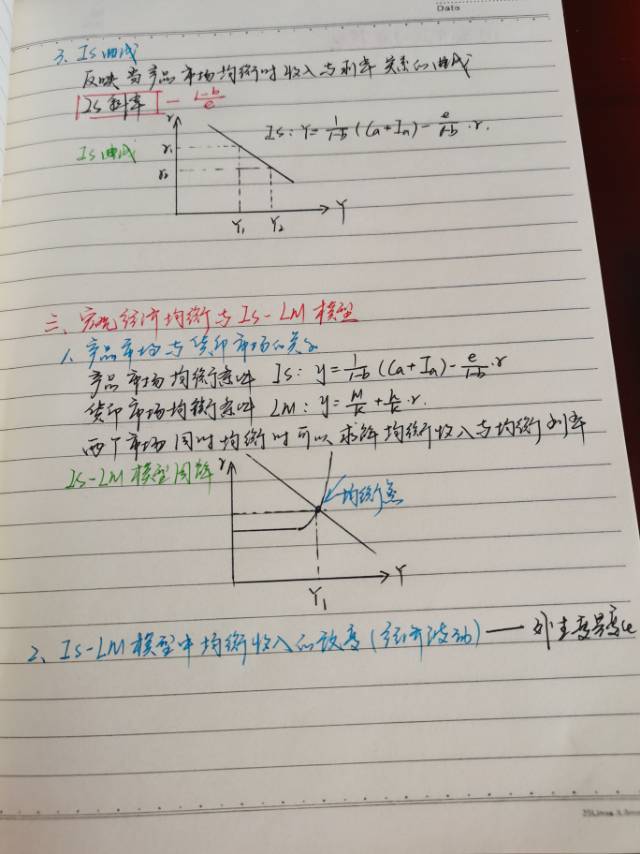 Date
3、Is曲线
反映当产品市场均衡时收入与利率关系的曲线
Is斜率 - 1-b/e
Is曲线
r
r₁
r₂
Y₁ Y₂ Y
Is: Y = 1/1-b (Ca+Ia) - e/1-b · r.
三、宏观经济均衡与Is-LM模型
1、产品市场与货币市场的关系
产品市场均衡条件 Is: y = 1/1-b (Ca+Ia) - e/1-b · r
货币市场均衡条件 LM: y = M/k + h/k · r.
两个市场同时均衡时可以求解均衡收入与均衡利率
Is-LM模型图解
r
均衡点
Y₁ Y
2、Is-LM模型中均衡收入的改变(经济波动) — 外生变量变化